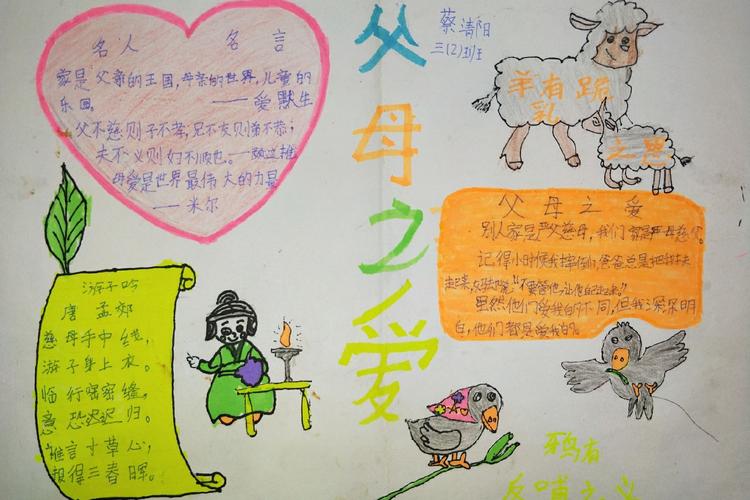 名人 名言
家是父亲的王国,母亲的世界,儿童的
乐园。
——爱默生
父不慈则子不孝;兄不友则弟不恭;
夫不义则妇不顺也。——颜之推
母爱是世界最伟大的力量
——米尔
父母之爱
蔡清阳
三(2)班
羊有跪
乳
之恩
父母之爱
别人家是严父慈母,我们家是严母慈父。
记得小时候我摔倒,爸爸总是把我扶
起来,
"不要管他,让他自己起来。"
虽然他们爱我的不同,但我深深明
白,他们都是爱我的。
游子吟
唐 孟郊
慈母手中线,
游子身上衣。
临行密密缝,
意恐迟迟归。
谁言寸草心,
报得三春晖。
鸦有
反哺之义